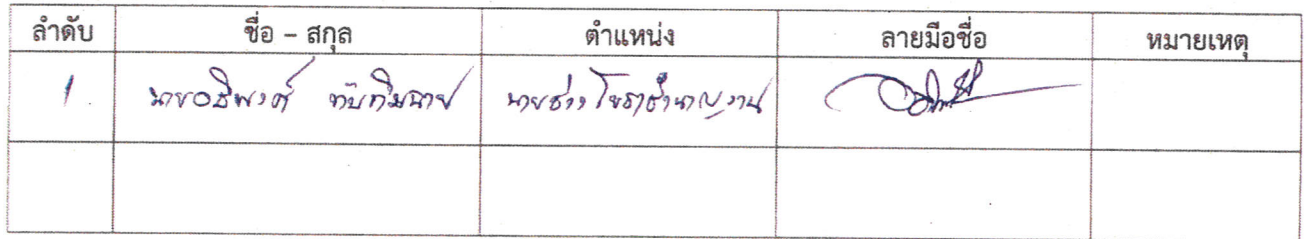 ลำดับ ชื่อ – สกุล ตำแหน่ง ลายมือชื่อ หมายเหตุ
1. นายอธิพงศ์ ทับทิมฉาย นายช่างโยธาชำนาญงาน